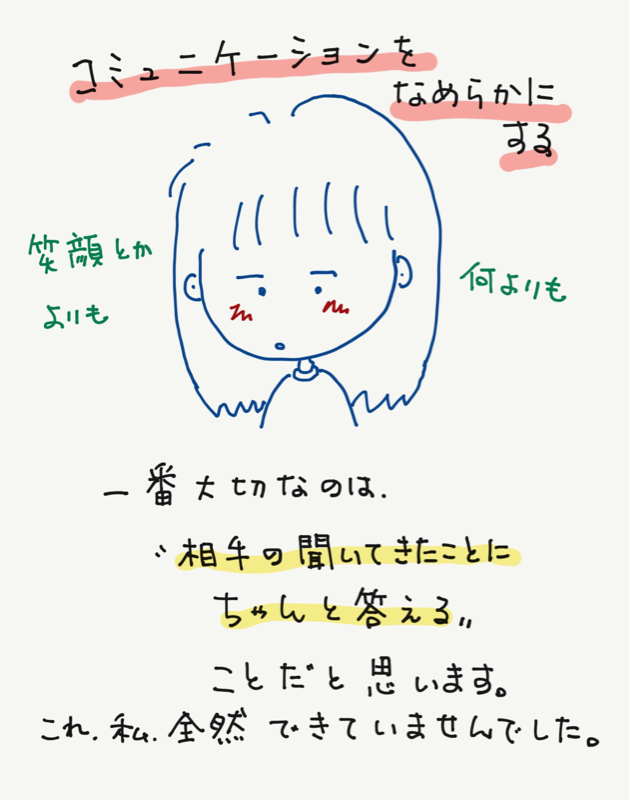 コミュニケーションを
なめらかに
する
笑顔とか
よりも
何よりも
一番大切なのは、
〝相手の聞いてきたことに
ちゃんと答える〟
ことだと思います。
これ、私、全然できていませんでした。